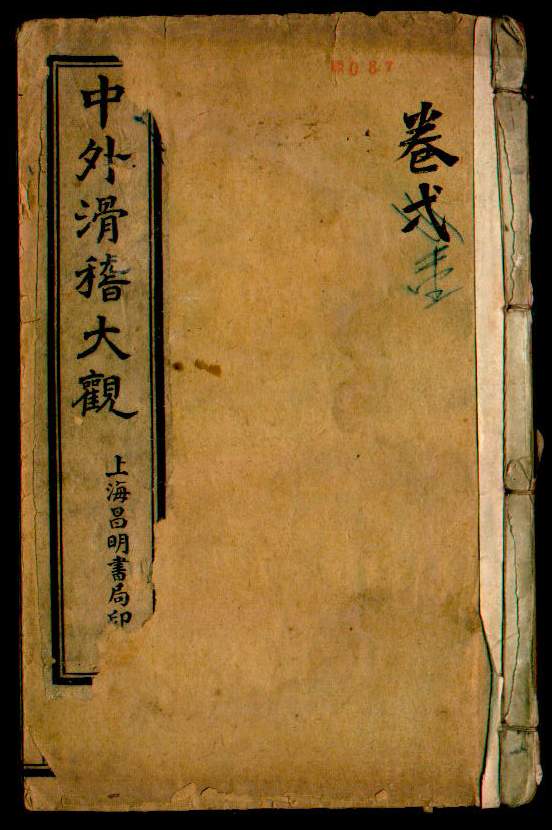 卷弍
壹
中外滑稽大觀
上海昌明書局印